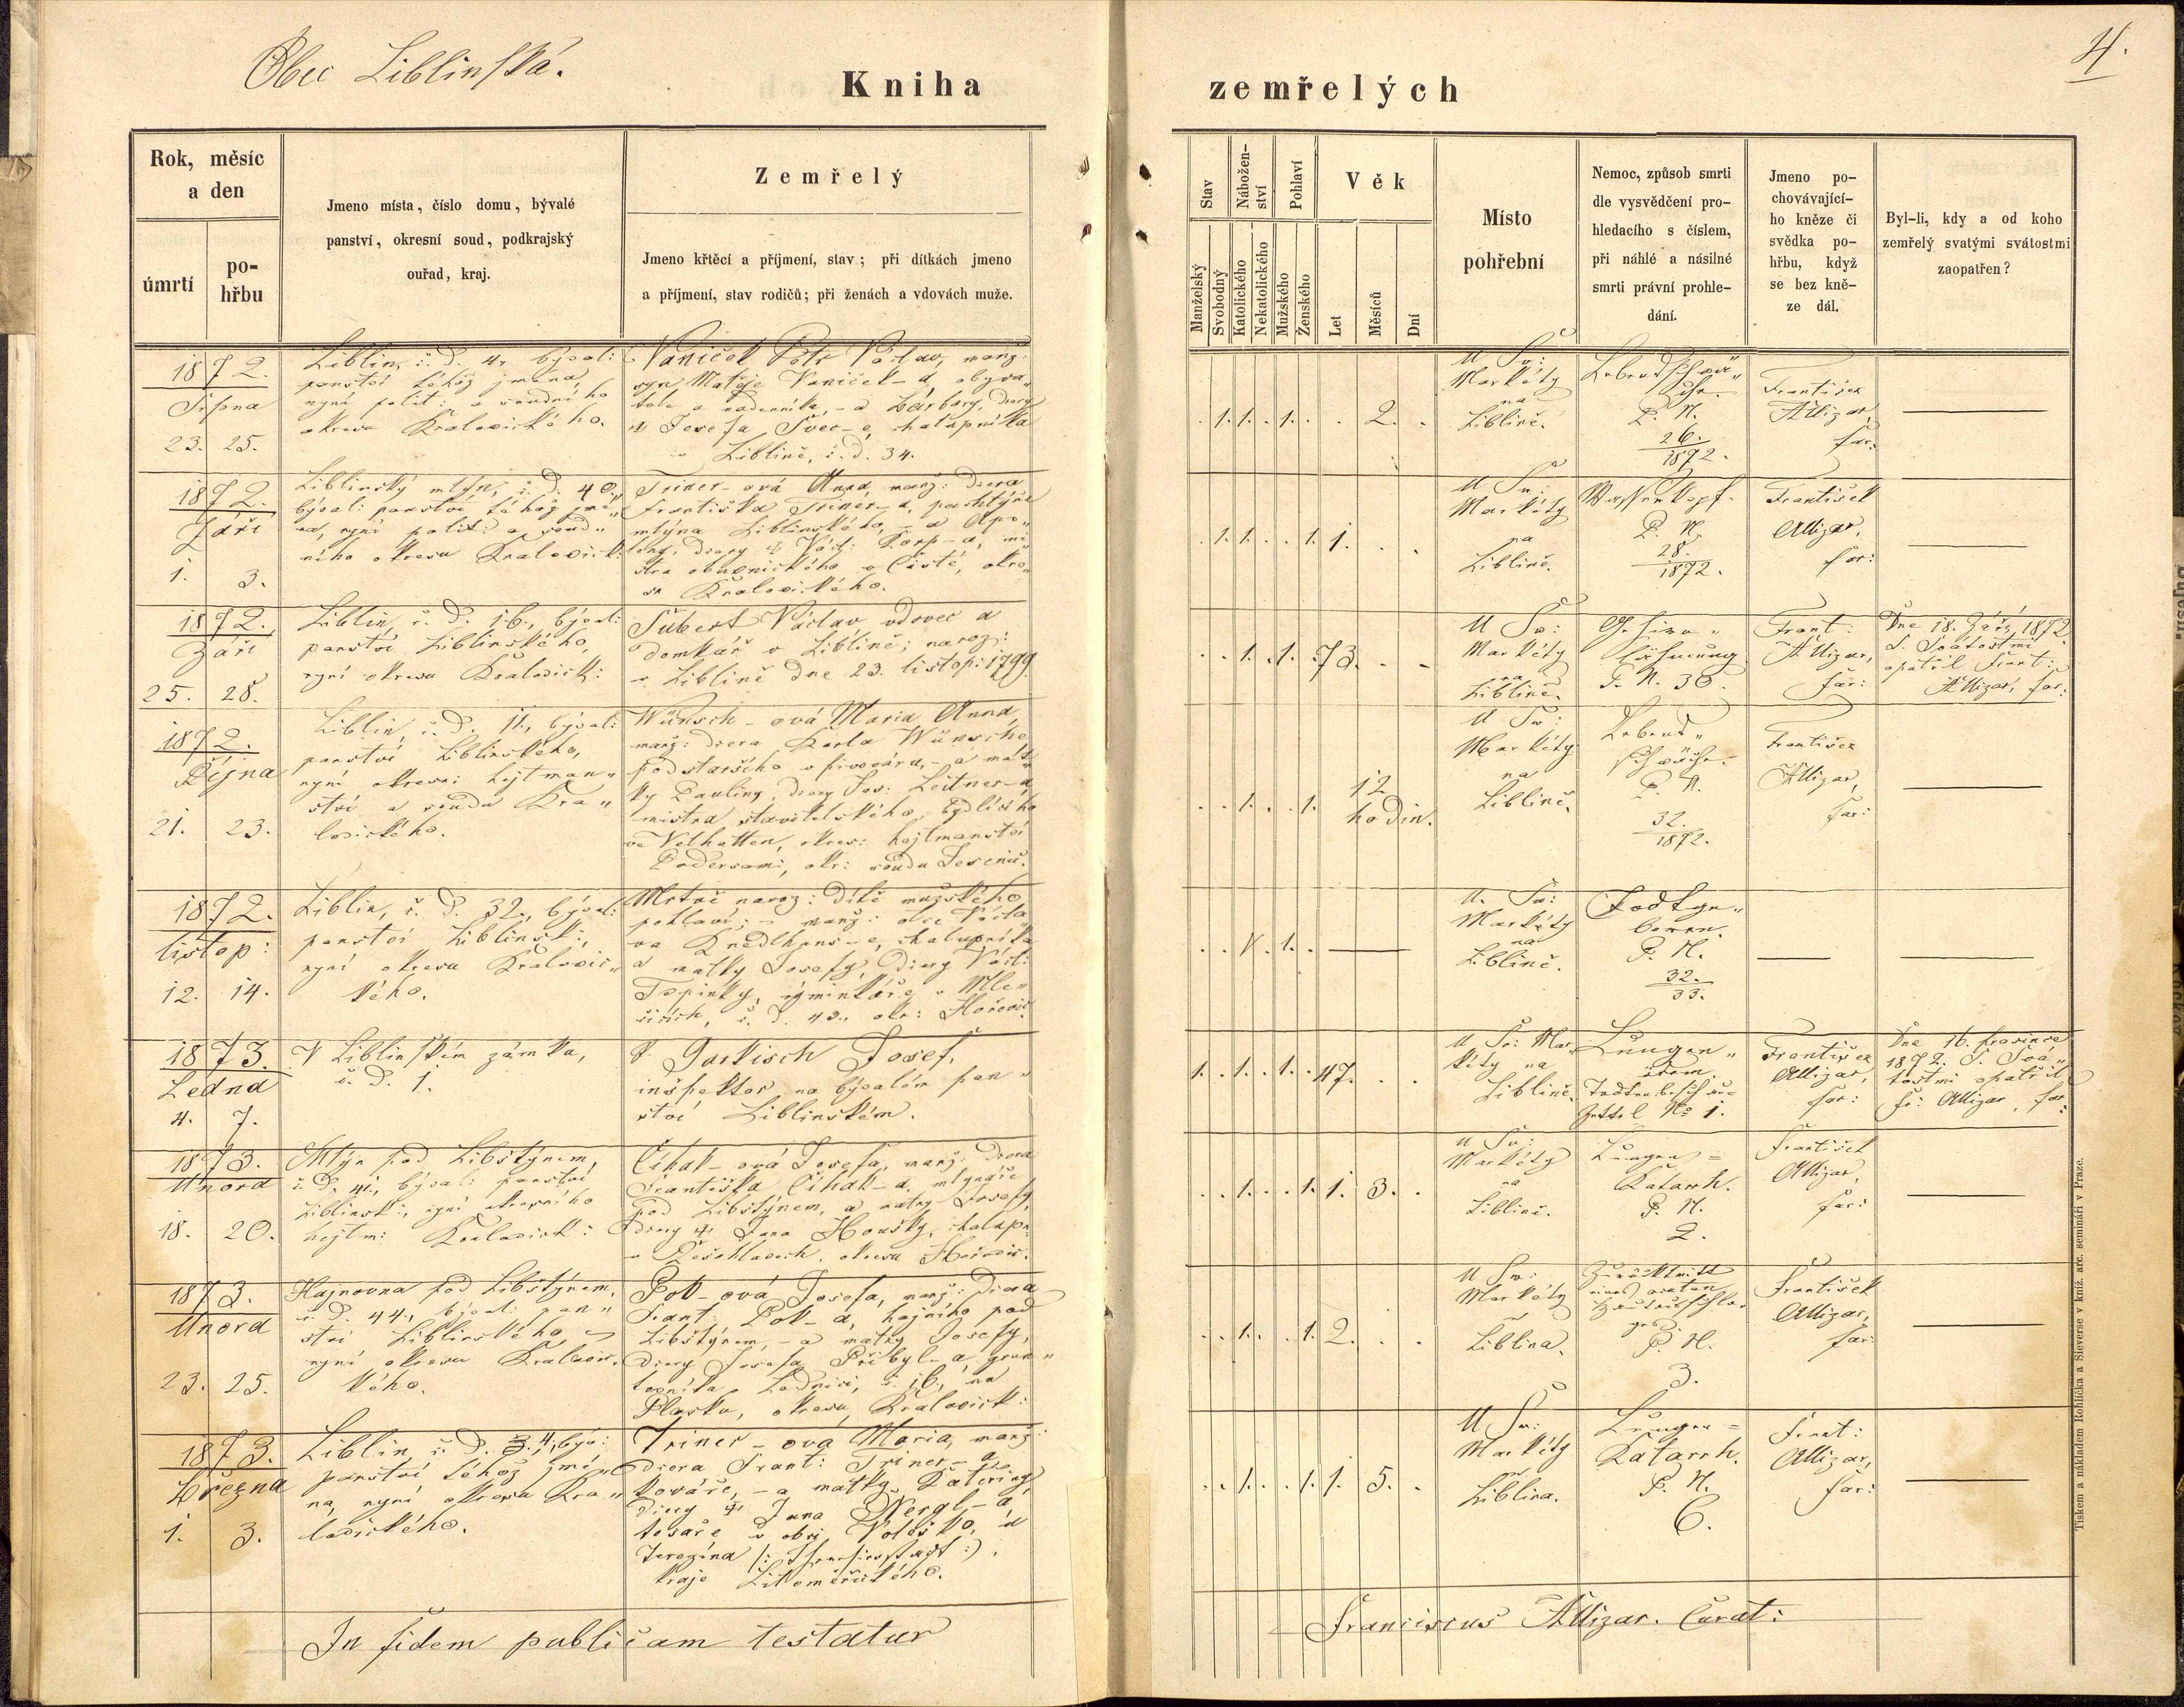 Obec Liblinská.
Kniha zemřelých
4.
Rok, měsíc
a den
úmrtí
po-
hřbu
Jmeno místa, číslo domu, bývalé
panství, okresní soud, podkrajský
ouřad, kraj.
Zemřelý
Jmeno křtěcí a příjmení, stav; při dítkách jmeno
a příjmení, stav rodičů; při ženách a vdovách muže.
Stav
Manželský
Svobodný
Nábožen-
ství
Katolického
Nekatolického
Pohlaví
Mužského
Ženského
Věk
Let
Měsíců
Dní
Místo
pohřební
Nemoc, způsob smrti
dle vysvědčení pro-
hledacího s číslem,
při náhlé a násilné
smrti právní prohle-
dání.
Jmeno po-
chovávající-
ho kněze či
svědka po-
hřbu, když
se bez kně-
ze dál.
Byl-li, kdy a od koho
zemřelý svatými svátostmi
zaopatřen?
1872.
Srpna
23. 25.
Liblin, č. d. 4, býval:
panství téhož jména,
nyní polit: a soudního
okresu Kralovického.
Vaníček Petr Václav, manž.
syn Matěje Vaníček-a, obyva„
tele a nádenníka, - a Barbory, dcery
Josefa Švec-e, chalupníka
v Liblíně, č. d. 34.
. 1. 1. . 1. . . 2. .
U Sv:
Markéty
na
Liblině.
P. N.
26.
1872.
František
Allizar,
far:
1872.
Září
1. 3.
Liblinský mlýn, č. d. 40.,
býval: panství téhož jmé„
na, nyní polit: a soud„
ního okresu Kralovick:
Triner-ová Anna, manž: dcera
Františka Triner-a, pachtýře
mlýna Liblinského, - a Apo„
leny, dcery Václ: Korp-a, mi„
stra obuvnického v Čisté, okre„
su Kralovického.
. 1. 1. . . 1. 1. . .
U Sv:
Markéty
na
Liblině.
Wasserkopf.
P. N.
28.
1872.
František
Allizar,
far:
1872.
Září
25. 28.
Liblin, č. d. 16., býval:
panství Liblinského,
nyní okresu Kralovick:
Šubert Václav vdovec a
domkář v Liblíně; naroz:
v Liblíně dne 23. listop: 1799.
. . 1. . 1. . 73. . .
U Sv:
Markéty
na
Liblině.
Gehirn„
lähmung
P. N. 30.
Frant:
Allizar,
far:
Dne 18. Září 1872
S. Svátostmi
opatřil Frant:
Allizar, far:
1872.
Října
21. 23.
Liblin, č. d. 11., býval:
panství Liblinského,
nyní okresu: hejtman„
ství a soudu Kra„
lovického.
Wünsch-ová Maria Anna,
manž: dcera Karla Wünsche
podstaršího v pivováru, - a mat„
ky Pauliny, dcery Jos: Leitner-a,
mistra stavitelského, bydlícího
ve Velhotten, okres: hejtmanství
Podersam:, okr: soudu Jesenic.
. . 1. . . 1. 12
hodin.
U Sv:
Markéty
na
Liblině.
Lebens„
schwäche.
P. N.
32.
1872.
František
Allizar,
far:
1872.
listop:
12. 14.
Liblin, č. d. 32., býval:
panství Liblinsk:,
nyní okresu Kralovic„
kého.
Mrtvě naroz: dítě mužského
pohlaví; - manž: otce Václa„
va Knedlhans-e, chalupníka
a matky Josefy, dcery Václ:
Topinky, výminkáře v Mle„
čicích, č. d. 43., okr: Hořovic.
. . 1. . 1. .
U. Sv:
Markéty
na
Liblině.
Todtge„
boren.
P. N.
32.
33.
1873.
Ledna
4. 7.
V Liblinském zámku,
č. d. 1.
P. Garkisch Josef,
inspektor na bývalém pan„
ství Liblinském.
1. . 1. . 1. . 47. . .
U Sv: Mar„
kéty na
Liblině.
Lungen„
ödem.
Todtenbeschau-
Zettel No 1.
František
Allizar,
far:
Dne 16. prosince
1872. S. Svá„
tostmi opatřil
Fr: Allizar, far:
1873.
Února
18. 20.
Mlýn pod Libštýnem,
č. d. 41., býval: panství
Liblinsk:, nyní okresního
hejtm: Kralovick:
Číhak-ová Josefa, manž: dcera
Františka Číhak-a, mlynáře
pod Libštýnem, a matky Josefy,
dcery Jana Houšky, chalupn:
v Dešohladech, okresu Hořovic.
. . 1. . . 1. 1. 3. .
U Sv:
Markéty
na
Liblině.
Lungen=
Katarrh.
P. N.
2.
František
Allizar,
far:
1873.
Února
23. 25.
Hajnovna pod Libštýnem,
č. d. 44., býval: pan„
ství Liblinského,
nyní okresu Kralovic„
kého.
Pok-ová Josefa, manž: dcera
Frant: Pok-a, hajného pod
Libštýnem, - a matky Josefy,
dcery Josefa Přibyl-a, grun„
tovníka v Lednici, č. 16., na
Plasku, okresu Kralovick:
. . 1. . . 1. 2. . .
U Sv:
Markéty
Liblina.
Zurücktritt
eines acuten
Hautausschla-
ges.
P. N.
3.
František
Allizar,
far:
1873.
Března
1. 3.
Liblin, č. d. 3. 4., býv:
panství téhož jmé„
na, nyní okresu Kra„
lovického.
Triner-ová Maria, manž:
dcera Frant: Triner-a,
kováře, - a matky Kateřiny,
dcery Jana Nergl-a,
tesaře v obci Volesko, u
Terezína (: Theresienstadt :),
kraje Litoměřického.
. . 1. . . 1. 1. 5. .
U Sv:
Markéty
Liblina.
Lungen=
Katarrh.
P. N.
6.
Frant:
Allizar,
far:
In fidem publicam testatur
Franciscus Allizar. Curat:
Tiskem a nákladem Rohlíčka a Sieverse v kníž. arc. semináři v Praze.